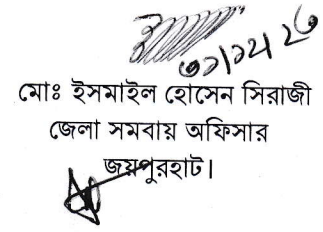 মোঃ ইসমাইল হোসেন সিরাজী
জেলা সমবায় অফিসার
জয়পুরহাট।